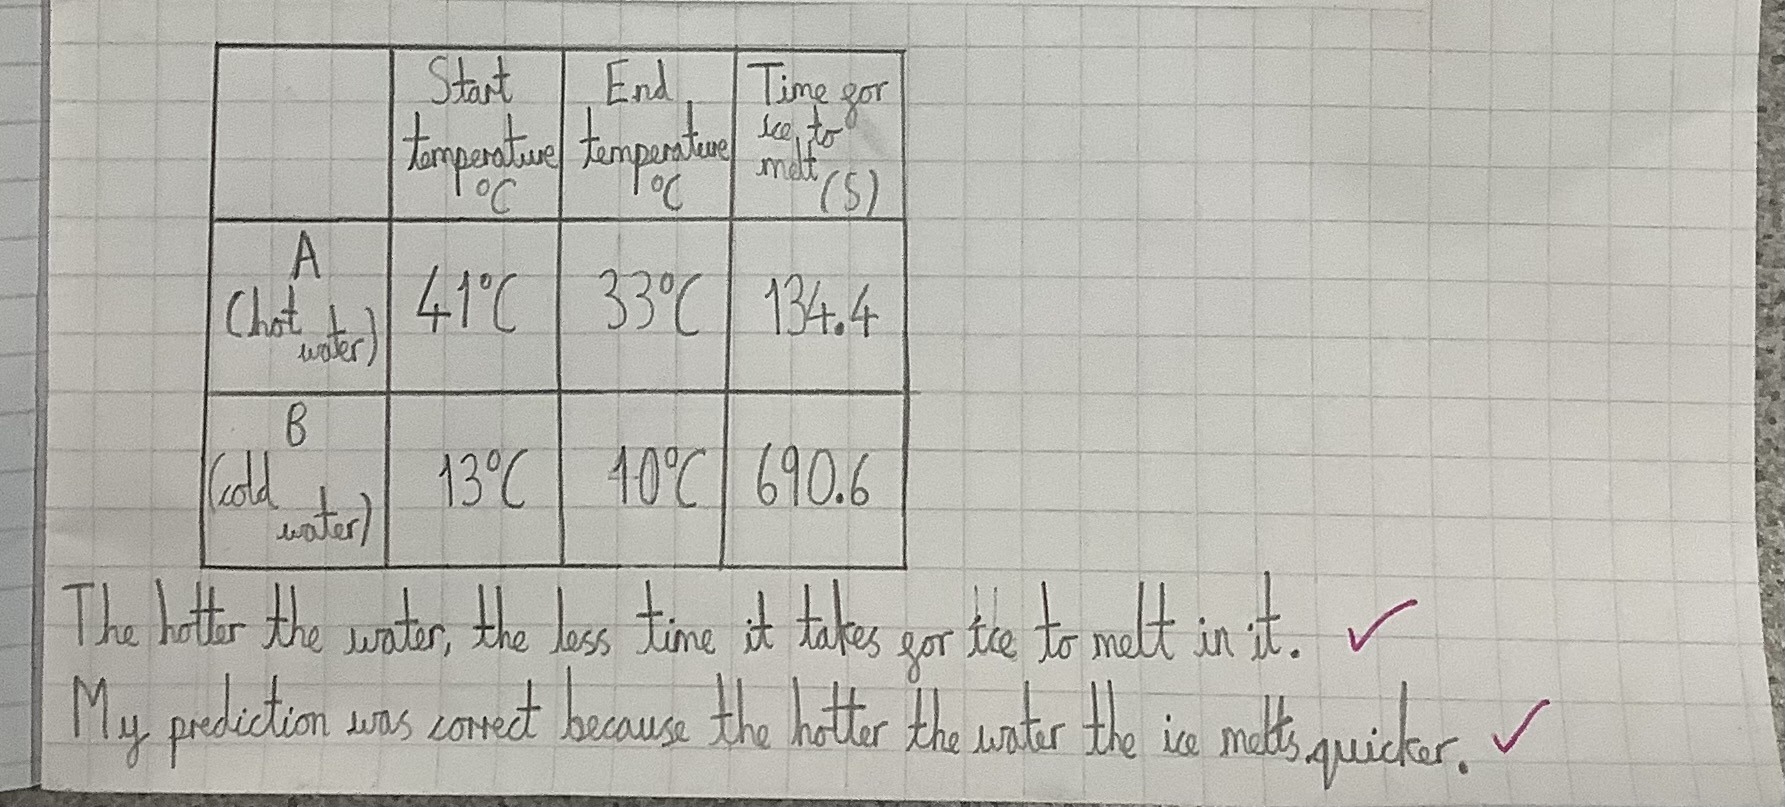 Start temperature °C
End temperature °C
Time for ice to melt (S)
A (hot water)
41°C
33°C
134.4
B (cold water)
13°C
10°C
690.6
The hotter the water, the less time it takes for ice to melt in it.
My prediction was correct because the hotter the water the ice melts quicker.